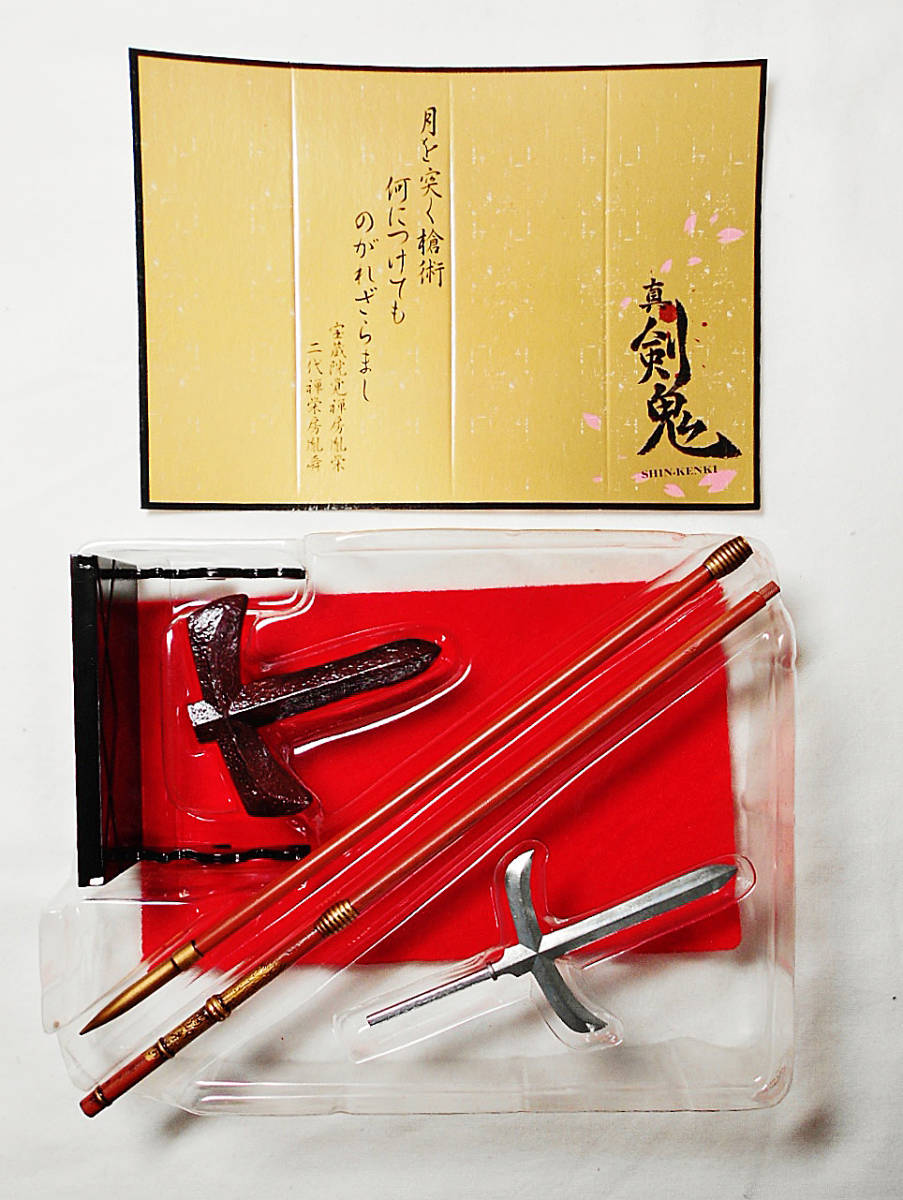 真
剣
鬼
SHIN-KENKI
月を突く槍術
何につけても
のがれざらまし
宝蔵院覚禅房胤栄
二代禅栄房胤舜